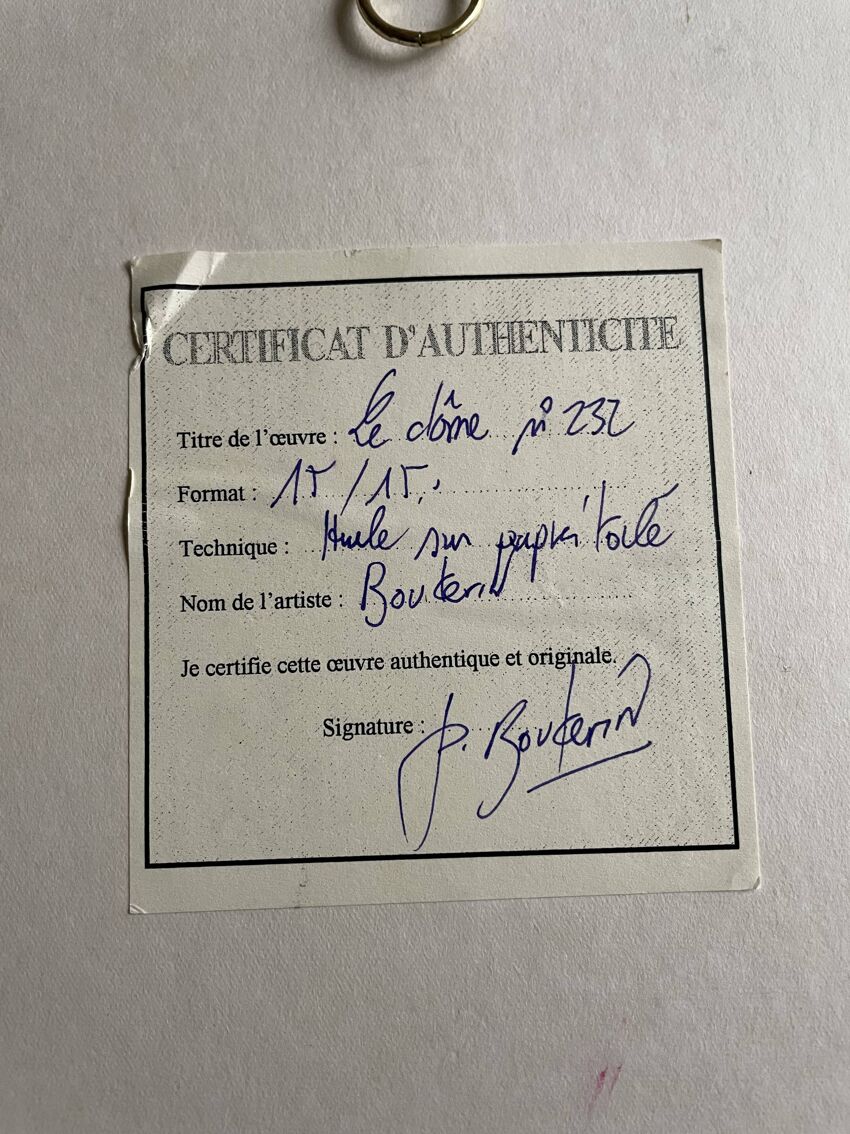 CERTIFICAT D'AUTHENTICITE
Titre de l'œuvre : Le dôme n° 232
Format : 15 / 15
Technique : Huile sur papier toilé
Nom de l'artiste : Bouterin
Je certifie cette œuvre authentique et originale.
Signature : Bouterin